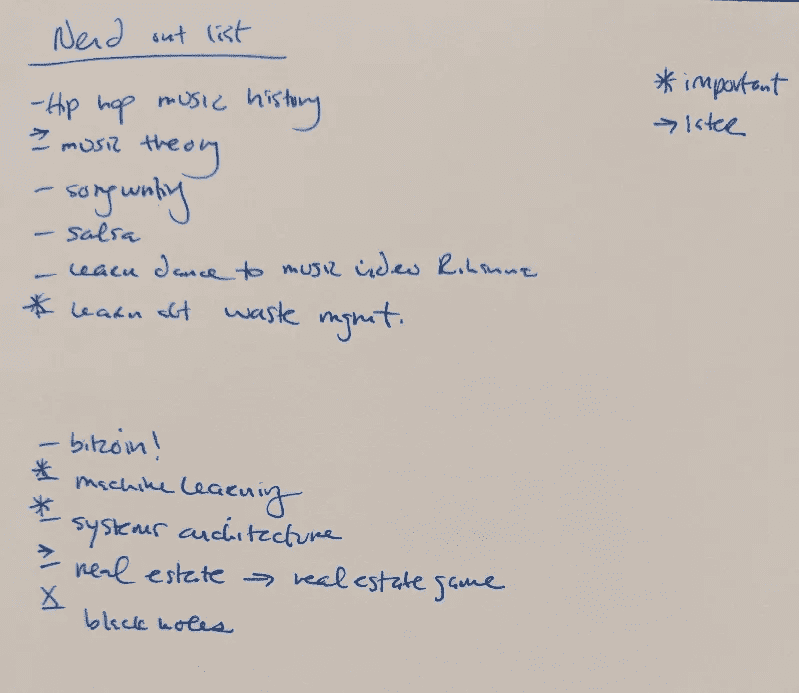 Nerd out list
* important
→ later
- Hip hop music history
→ - music theory
- songwriting
- salsa
- learn dance to music video Rihanna
* - learn abt waste mgmt.
- bitcoin!
* - machine learning
* - systems architecture
→ - real estate → real estate game
X - black holes